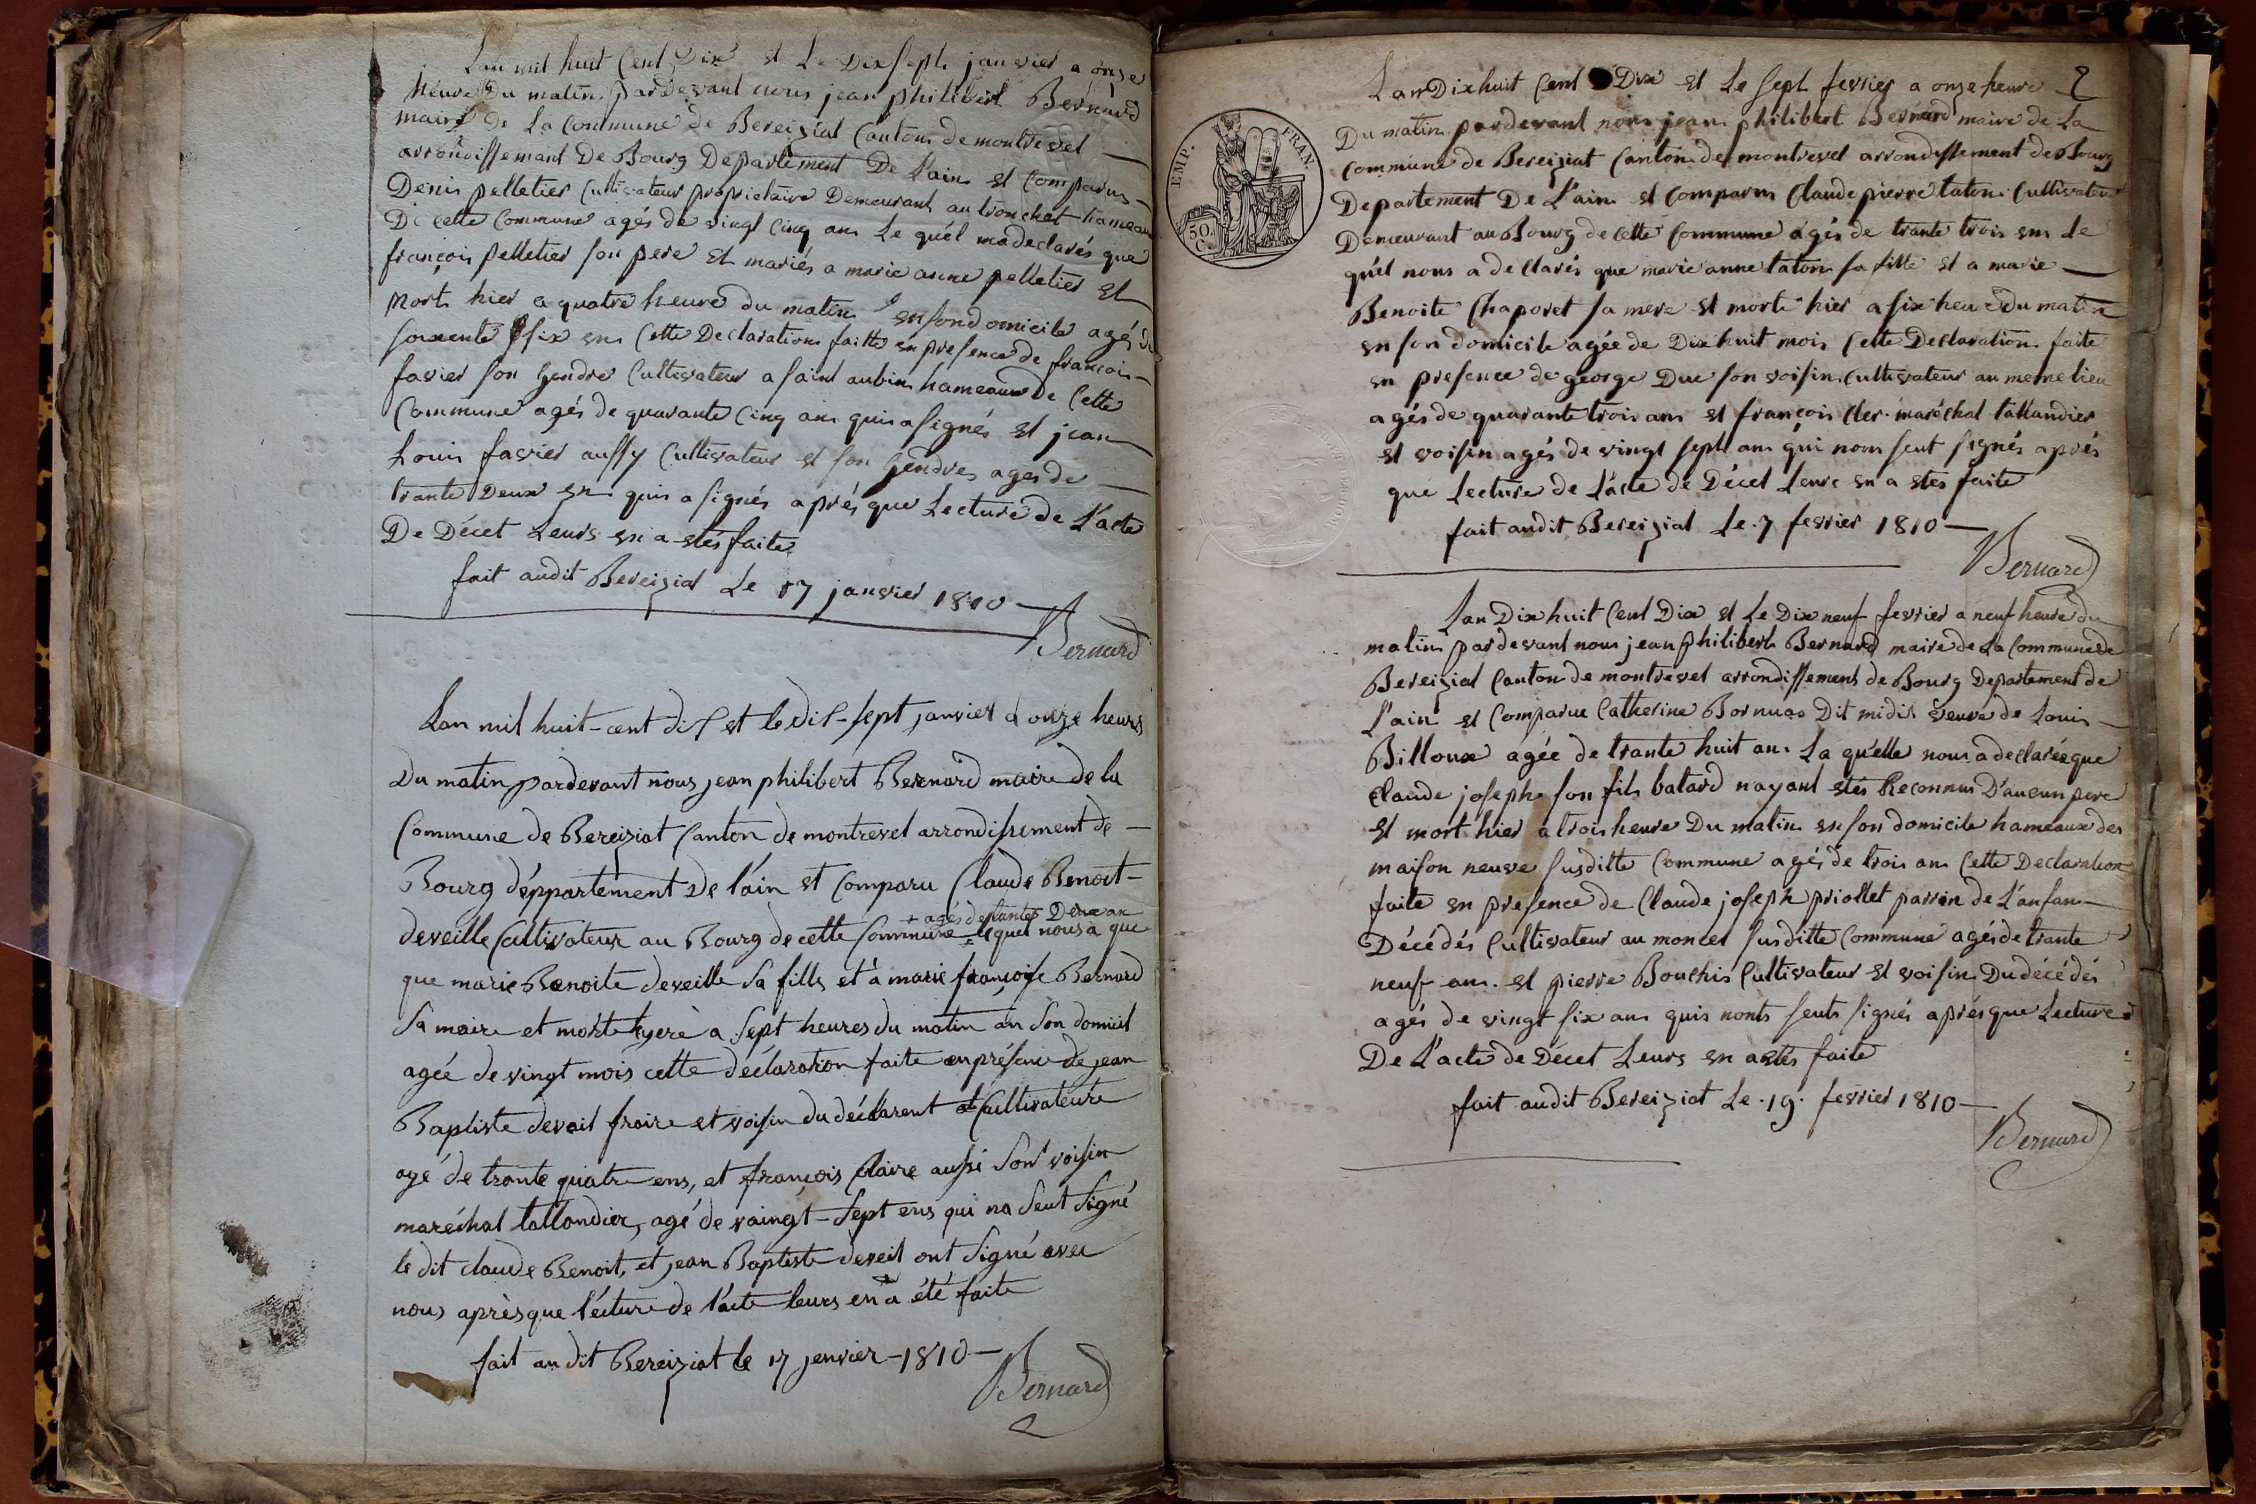 Lan mil huit Cent Dix et Le Dix Sept janvier a onze
heure Du matin pardevant nous jean philibert Bernard
maire de La Commune de Bereiziat Canton de montrevel
arrondissemant De Bourg Departement De L'ain et Comparus
Denis pelletier Cultivateur proprietaire Demeurant au tronchet hameau
De Cette Commune agés de vingt Cinq ans Le quél ma declarés que
françois pelletier son pere et mariés a marie anne pelletier et
mort hier a quatre heure du matin en son domicile agés de
soixente six ans Cette Declaration faitte en presence de françois
favier son Gendre Cultivateur a saint aubin hameaux de Cette
Commune agés de quarante Cinq ans qui a signés et jean
Louis favier aussy Cultivateur et son Gendre agés de
trante Deux ans qui a signés aprés que Lecture de L'acte
De Décet Leurs en a etés faite
fait audit Bereiziat Le 17 janvier 1810
Bernard
Lan mil huit-cent dis et le dis-sept janvier a onze heurs
Du matin pardevant nous jean philibert Bernard maire de la
Commune de Bereiziat Canton de montrevel arrondissement de
Bourg déppartement De l'ain et Comparu Claude Benoit
+ agés de trante Deux an
deveille Cultivateur au Bourg de cette Commune + lequel nous a que
que marie Benoite deveille Sa fille et à marie françoise Bernard
Sa maire et morte hyerè a Sept heures du matin an Son domicil
agée de vingt mois cette déclaration faite en présence de jean
Baptiste deveil fraire et voisin du déclarent et Cultivateure
agé de trante quatre ens, et françois Claire aussi Son voisin
maréchal tallandier, agé de vaingt-Sept ens qui na Seut Signé
le dit claude Benoit, et jean Baptiste deveil ont Signé avec
nous après que l'écture de l'acte leurs en a été faite
fait au dit Bereiziat le 17 jenvier 1810
Bernard
2
EMP. FRAN.
50. C.
Lan Dix huit Cent Dix et Le Sept fevrier a onze heure
Du matin pardevant nous jean philibert Bernard maire de La
Commune de Bereiziat Canton de montrevel arrondissement de Bourg
Departement De L'ain et Comparus Claude pierre taton Cultivateur
Demeurant au Bourg de Cette Commune agés de trante trois ans Le
quél nous a declarés que marie anne taton sa fille et a marie
Benoite Chaporet sa mere et morte hier a six heure Du matin
en son domicile agée de Dix huit mois Cette Declaration faite
en presence de george Duc son voisin Cultivateur au meme lieu
agés de quarante trois ans et françois Cler maréchal tallandier
et voisin agés de vingt Sept ans qui nons seut signés aprés
que Lecture de L'acte de Décet Leurs en a etés faite
fait audit Bereiziat Le 7 fevrier 1810
Bernard
Lan Dix huit Cent Dix et Le Dix neuf fevrier a neuf heure du
matin pardevant nous jean philibert Bernard maire de La Commune de
Bereiziat Canton de montrevel arrondissement de Bourg Departement de
L'ain et Comparue Catherine Dit midit veuve de Louis
Billoux agée de trante huit an La qu'elle nous a declarés que
Claude joseph son fils batard nayant etés Reconnus D'aucun pere
et mort hier a trois heure Du matin en son domicile hameaux des
maison neuve susditte Commune agés de trois ans Cette Declaration
faite en presence de Claude joseph priollet parrin de L'anfan
Décédés Cultivateur au moncel susditte Commune agés de trante
neuf ans et pierre Bouchis Cultivateur et voisin Du décédés
agés de vingt six ans quis nonts seuts signés aprés que Lecture
De L'acte de Décet Leurs en a etés faite
fait audit Bereiziat Le 19 fevrier 1810
Bernard